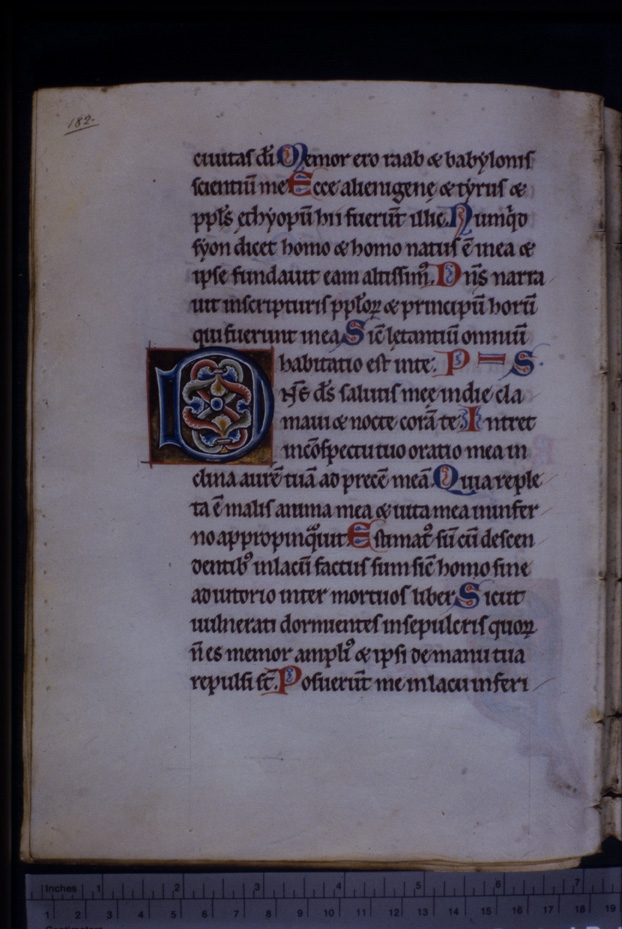 182.
ciuitas dī. Memor ero raab & babylonis
scientiū me Ecce alienigenę & tyrus &
ppl̄s ethyopū hii fuerūt illic. Numqͥd
syon dicet homo & homo natus ē inea &
ipse fundauit eam altissimꝰ. Dn̄s narra
uit inscripturis ppl̄oꝝ & principū horū
qui fuerunt inea. Sic̄ lętantiū omniū
habitatio est inte. P S.
Dn̄e ds̄ salutis mee indie cla
maui & nocte corā te. Intret
incōspectu tuo oratio mea in
clina aurē tuā ad precē meā. Quia reple
ta ē malis anima mea & uita mea ininfer
no appropinqͣuit Estimatꝰ sū cū descen
dentibꝰ inlacū factus sum sic̄ homo sine
adiutorio inter mortuos liber Sicut
uulnerati dormientes insepulcris quoꝝ
n̄ es memor ampliꝰ & ipsi de manu tua
repulsi st̄. Posuerūt me inlacu inferi
Inches 1 2 3 4 5 6 7
1 2 3 4 5 6 7 8 9 10 11 12 13 14 15 16 17 18 19